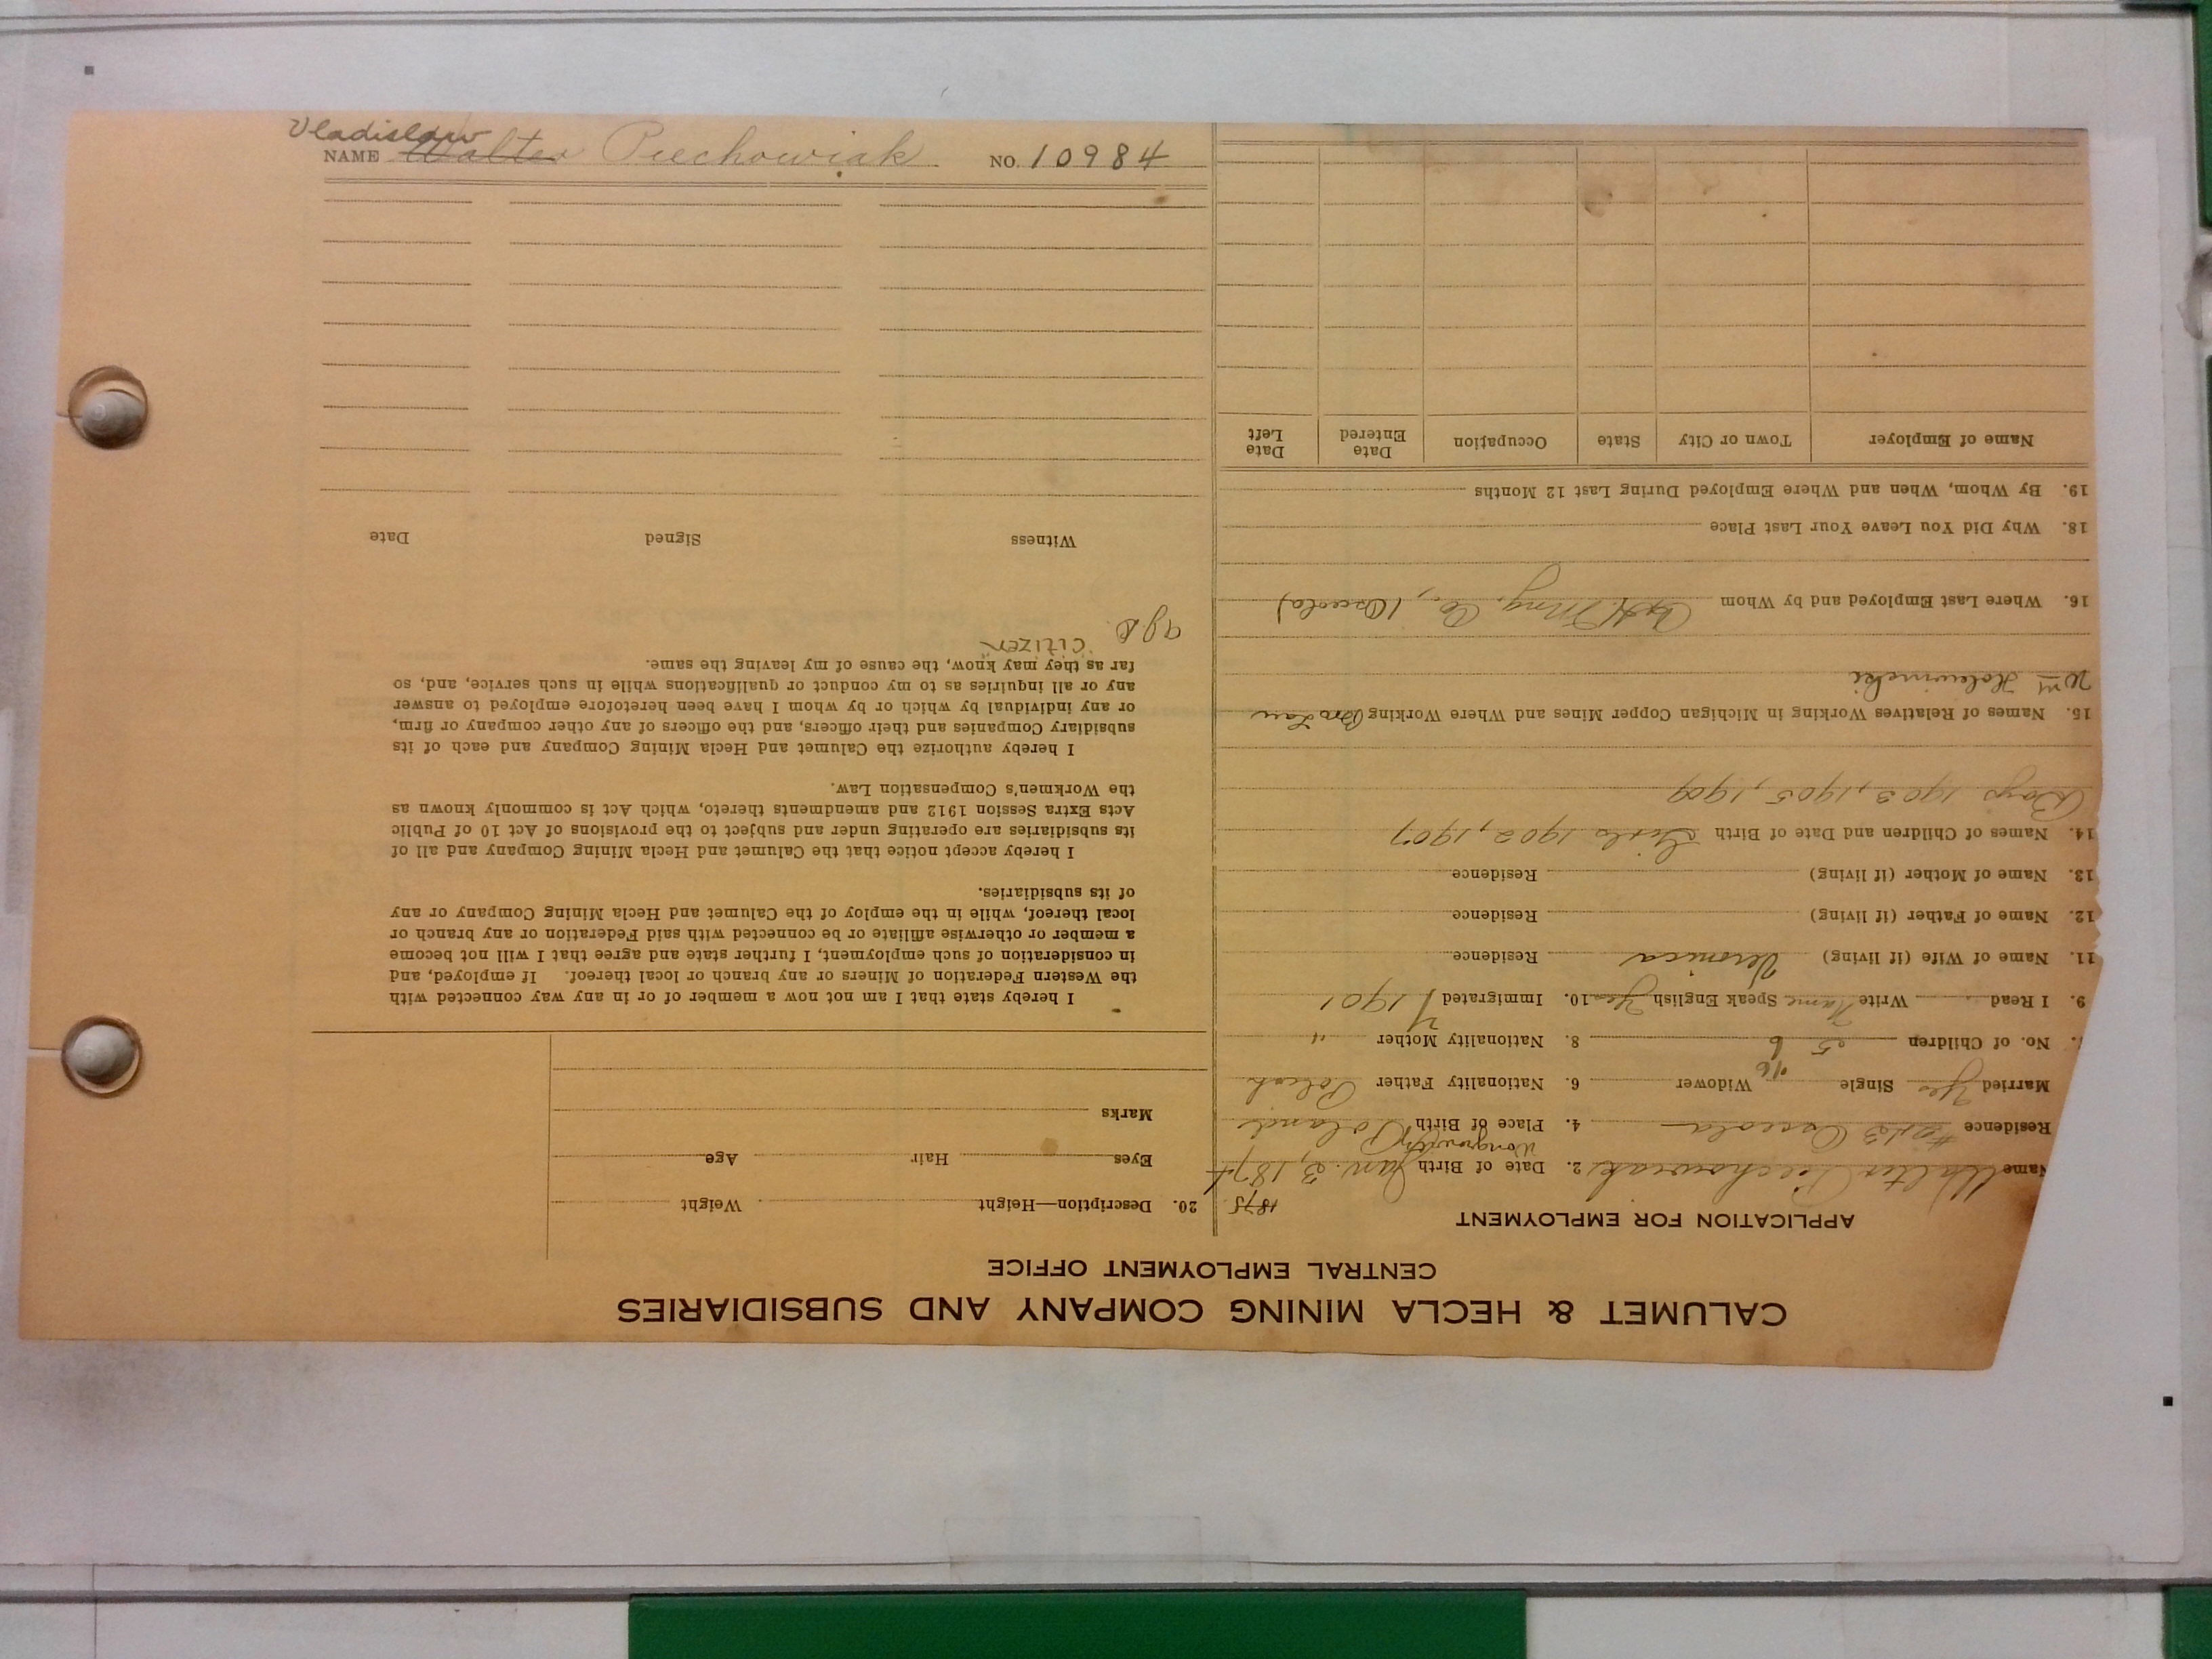 Vladislaw
NAME Walter Piechowiak NO. 10984
CALUMET & HECLA MINING COMPANY AND SUBSIDIARIES
CENTRAL EMPLOYMENT OFFICE
APPLICATION FOR EMPLOYMENT
1875
Name Walter Piechowiak 2. Date of Birth Jan. 3, 1874
Residence #213 Osceola 4. Place of Birth Poland
Married Yes Single Widower 6. Nationality Father Polish
No. of Children 5 6 8. Nationality Mother "
9. I Read Write Name Speak English Yes 10. Immigrated 1901
11. Name of Wife (if living) Veronica Residence
12. Name of Father (if living) Residence
13. Name of Mother (if living) Residence
14. Names of Children and Date of Birth Girls 1902, 1907
Boys 1903, 1905, 1909
15. Names of Relatives Working in Michigan Copper Mines and Where Working Bro Law
Wm Holewinski
16. Where Last Employed and by Whom C&H Mng. Co., (Osceola)
18. Why Did You Leave Your Last Place
19. By Whom, When and Where Employed During Last 12 Months
Name of Employer Town or City State Occupation Date Entered Date Left
20. Description—Height Weight
Eyes Hair Age
Marks
I hereby state that I am not now a member of or in any way connected with
the Western Federation of Miners or any branch or local thereof. If employed, and
in consideration of such employment, I further state and agree that I will not become
a member or otherwise affiliate or be connected with said Federation or any branch or
local thereof, while in the employ of the Calumet and Hecla Mining Company or any
of its subsidiaries.
I hereby accept notice that the Calumet and Hecla Mining Company and all of
its subsidiaries are operating under and subject to the provisions of Act 10 of Public
Acts Extra Session 1912 and amendments thereto, which Act is commonly known as
the Workmen's Compensation Law.
I hereby authorize the Calumet and Hecla Mining Company and each of its
subsidiary Companies and their officers, and the officers of any other company or firm,
or any individual by which or by whom I have been heretofore employed to answer
any or all inquiries as to my conduct or qualifications while in such service, and, so
far as they may know, the cause of my leaving the same.
"CITIZEN"
Witness Signed Date